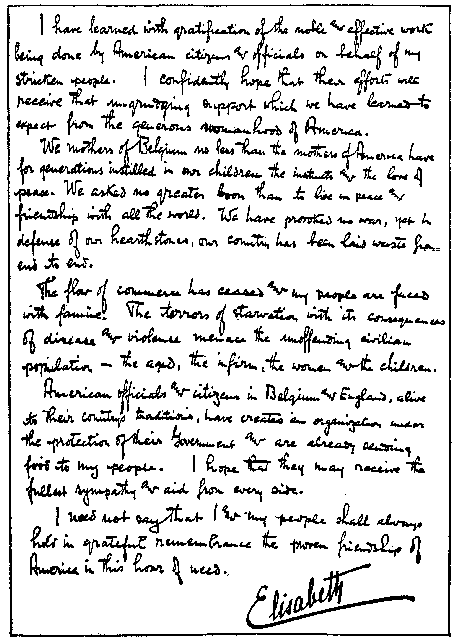 I have learned with gratification of the noble & effective work
being done by American citizens & officials on behalf of my
stricken people. I confidently hope that their efforts will
receive that ungrudging support which we have learned to
expect from the generous womanhood of America.
We mothers of Belgium no less than the mothers of America have
for generations instilled in our children the instincts & the love of
peace. We asked no greater boon than to live in peace &
friendship with all the world. We have provoked no war, yet in
defense of our hearthstones, our country has been laid waste from
end to end.
The flow of commerce has ceased & my people are faced
with famine. The terrors of starvation with its consequences
of disease & violence menace the unoffending civilian
population — the aged, the infirm, the women & the children.
American officials & citizens in Belgium & England, alive
to their country's traditions, have created an organization under
the protection of their Government & are already sending
food to my people. I hope that they may receive the
fullest sympathy & aid from every side.
I need not say that I & my people shall always
hold in grateful remembrance the proven friendship of
America in this hour of need.
Elisabeth